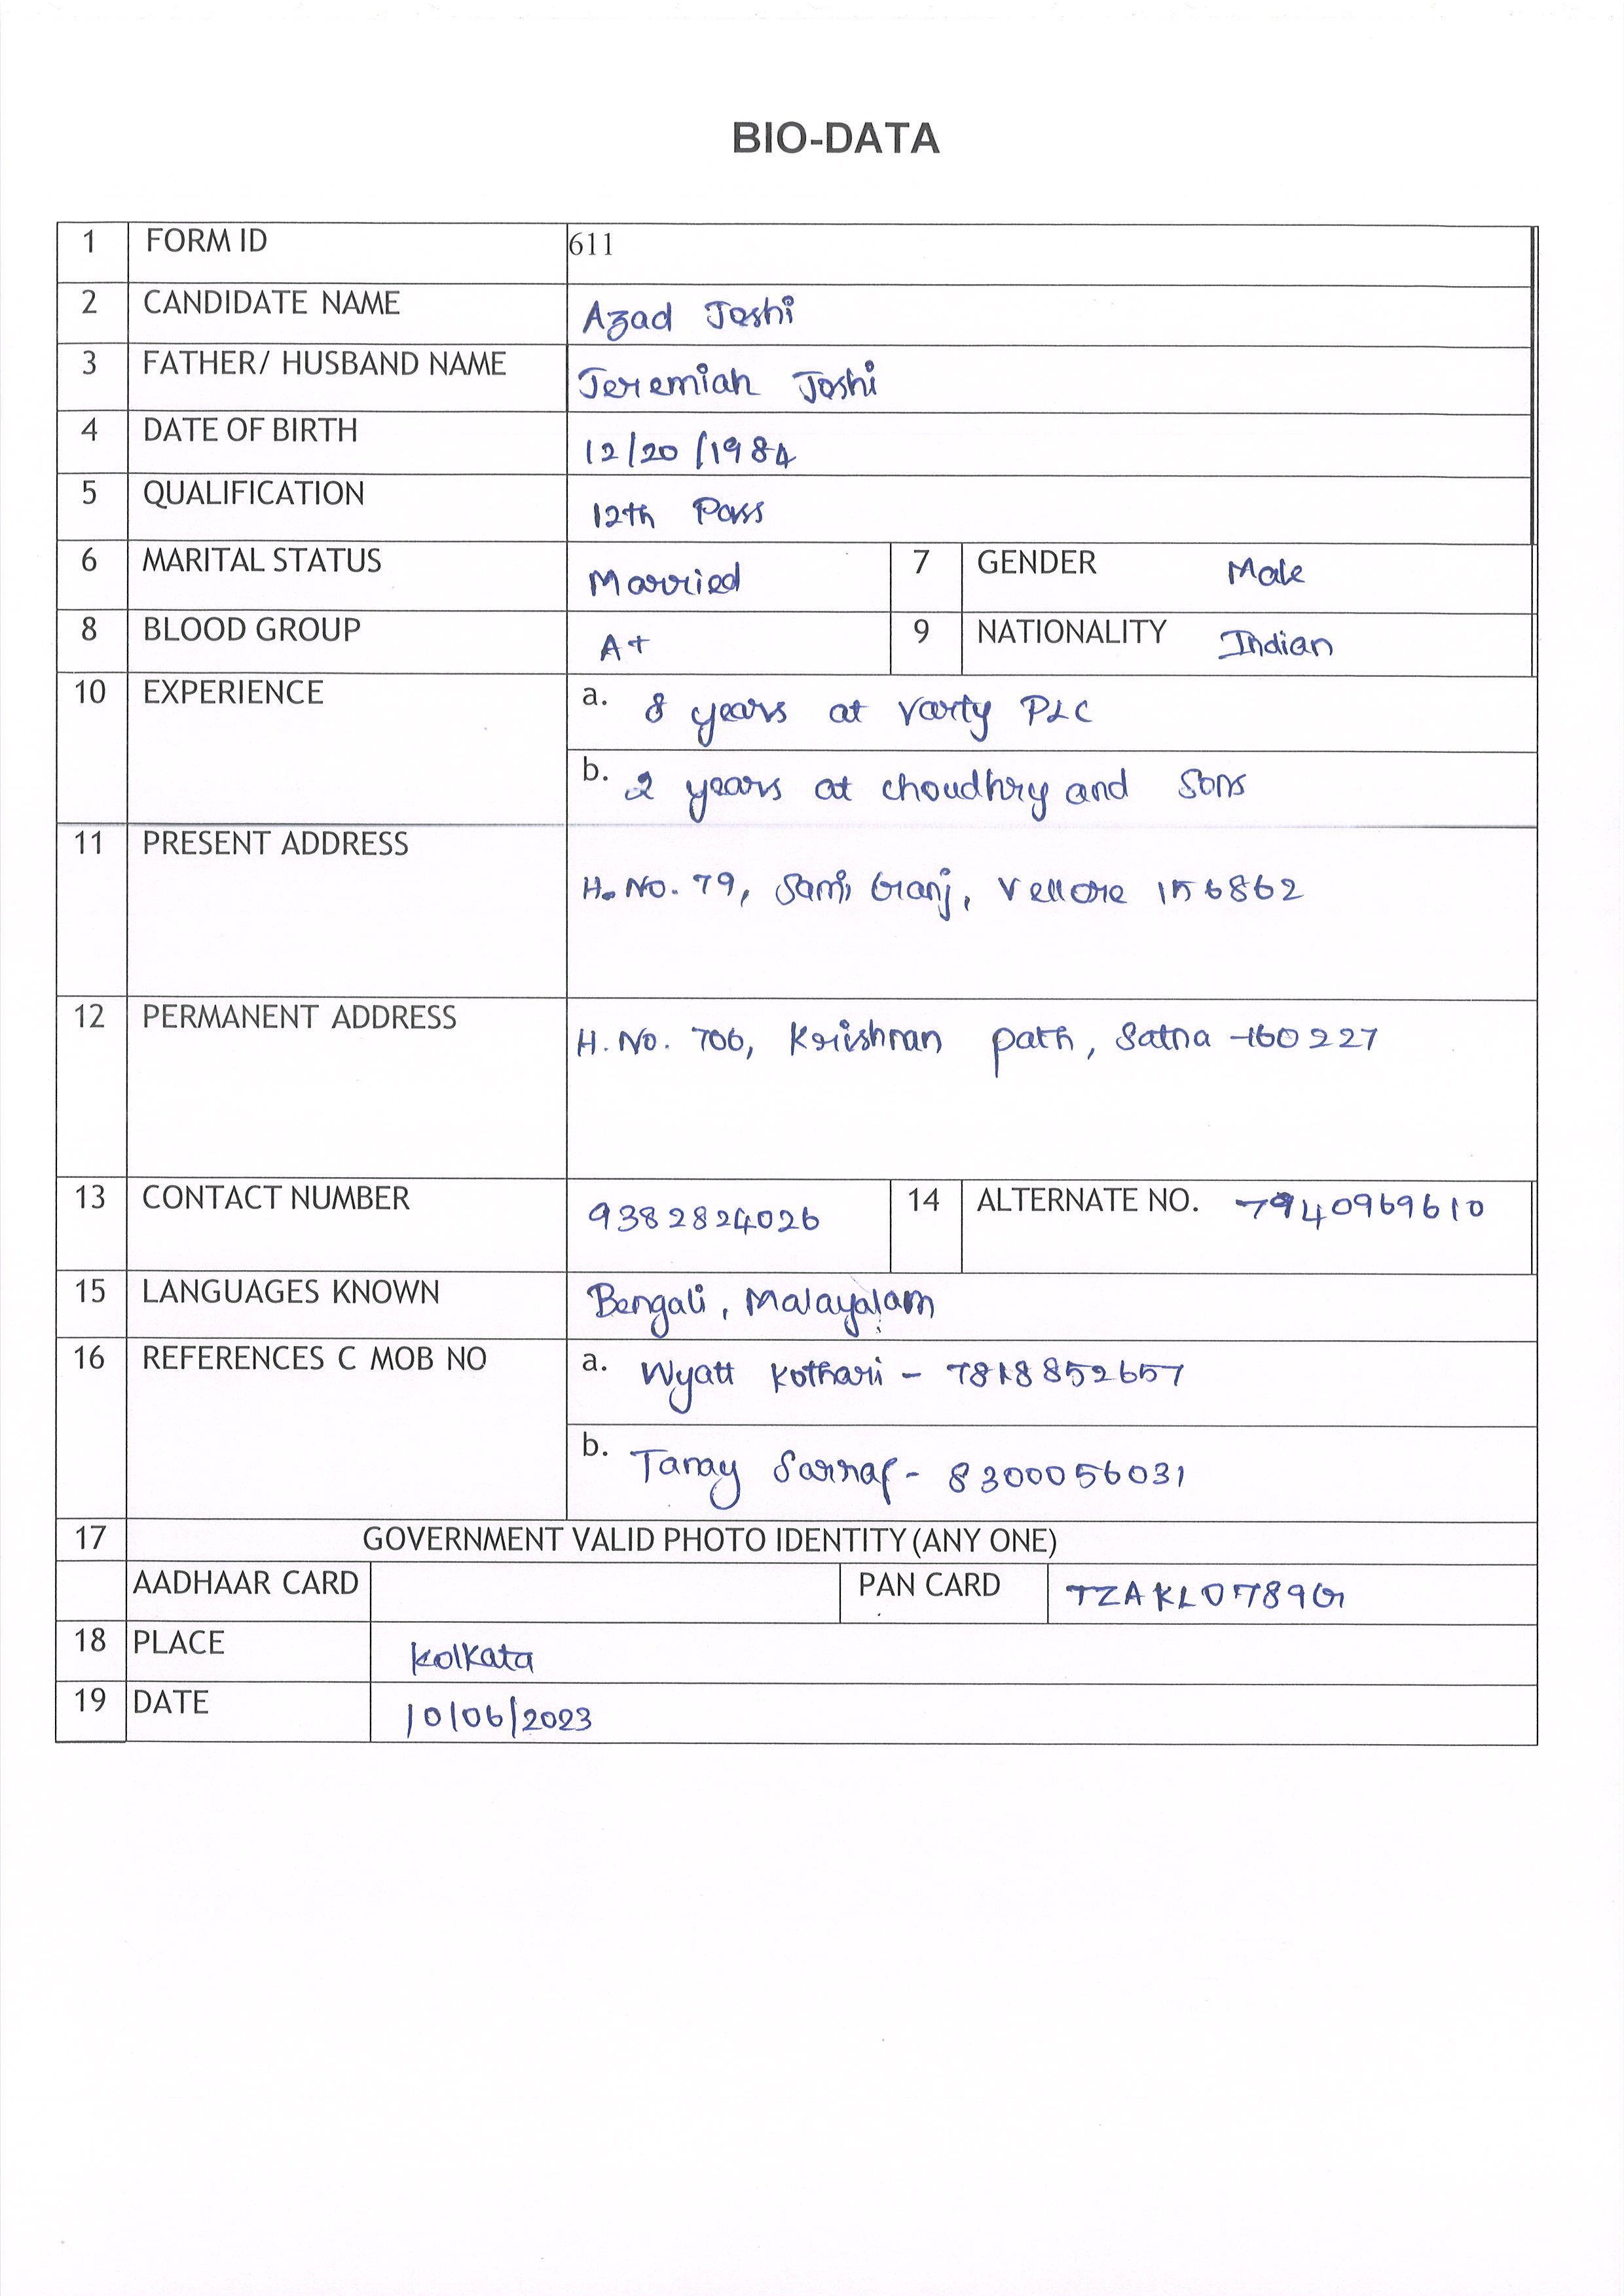 BIO-DATA
1 FORM ID 611
2 CANDIDATE NAME Azad Joshi
3 FATHER/ HUSBAND NAME Jeremiah Joshi
4 DATE OF BIRTH 12/20/1984
5 QUALIFICATION 12th Pass
6 MARITAL STATUS Married 7 GENDER Male
8 BLOOD GROUP A+ 9 NATIONALITY Indian
10 EXPERIENCE a. 8 years at Varty PLC
b. 2 years at choudhry and Sons
11 PRESENT ADDRESS
H. No. 79, Sami Ganj, Vellore 156862
12 PERMANENT ADDRESS H. No. 706, Krishnan path, Satna -160227
13 CONTACT NUMBER 9382824026 14 ALTERNATE NO. 7940969610
15 LANGUAGES KNOWN Bengali, Malayalam
16 REFERENCES C MOB NO a. Wyatt Kothari - 7818852657
b. Tanay Sarraf - 8300056031
17 GOVERNMENT VALID PHOTO IDENTITY (ANY ONE)
AADHAAR CARD PAN CARD TZAKL0789G
18 PLACE Kolkata
19 DATE 10/06/2023